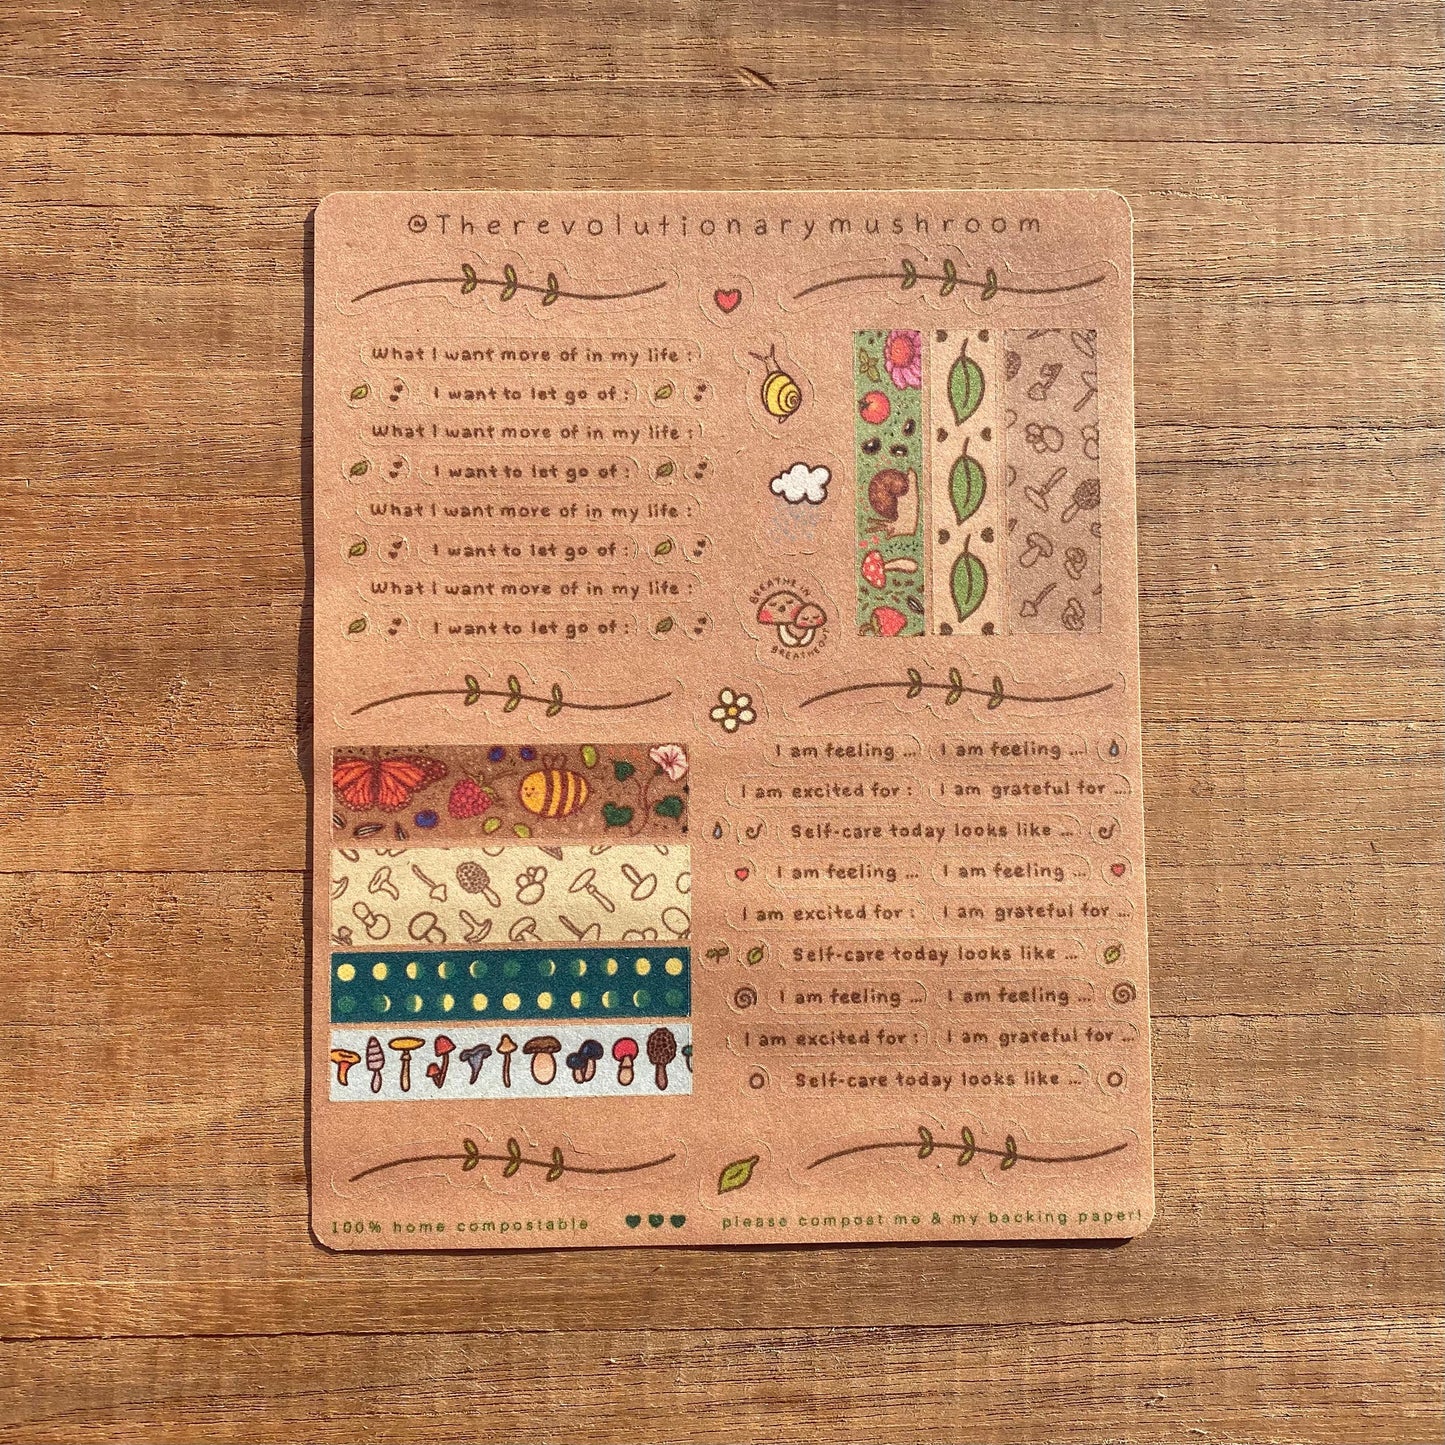 @Therevolutionarymushroom
What I want more of in my life :
I want to let go of :
What I want more of in my life :
I want to let go of :
What I want more of in my life :
I want to let go of :
What I want more of in my life :
I want to let go of :
BREATHE IN
BREATHE OUT
I am feeling ... I am feeling ...
I am excited for : I am grateful for ...
Self-care today looks like ...
I am feeling ... I am feeling ...
I am excited for : I am grateful for ...
Self-care today looks like ...
I am feeling ... I am feeling ...
I am excited for : I am grateful for ...
Self-care today looks like ...
100% home compostable
please compost me & my backing paper!